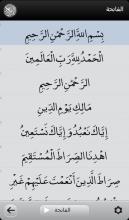 الفاتحة
بِسْمِ اللَّهِ الرَّحْمَٰنِ الرَّحِيمِ
الْحَمْدُ لِلَّهِ رَبِّ الْعَالَمِينَ
الرَّحْمَٰنِ الرَّحِيمِ
مَالِكِ يَوْمِ الدِّينِ
إِيَّاكَ نَعْبُدُ وَإِيَّاكَ نَسْتَعِينُ
اهْدِنَا الصِّرَاطَ الْمُسْتَقِيمَ
صِرَاطَ الَّذِينَ أَنْعَمْتَ عَلَيْهِمْ غَيْرِ
الفاتحة